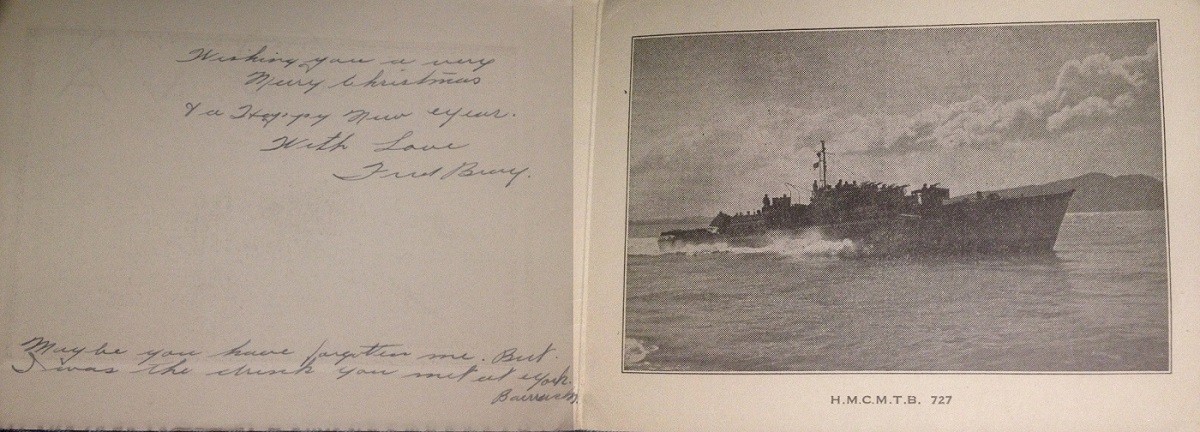 Wishing you a very
Merry Christmas
& a Happy New Year.
With Love
Fred
Maybe you have forgotten me. But
I was the drunk you met at York
H.M.C.M.T.B. 727